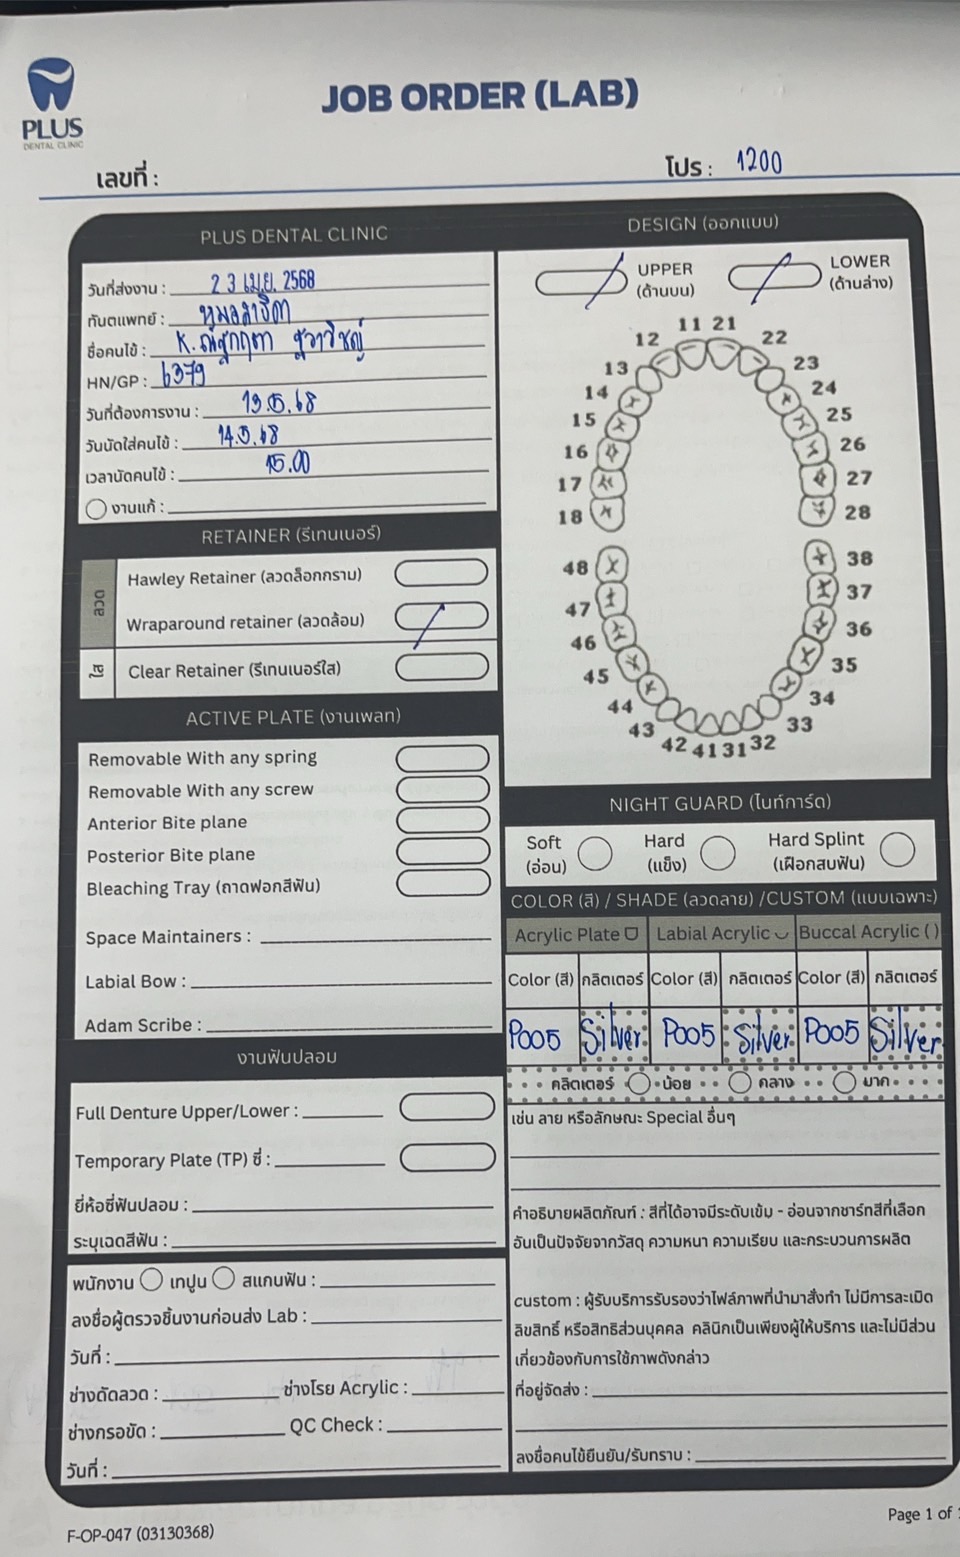 PLUS
DENTAL CLINIC
JOB ORDER (LAB)
เลขที่ :
โปร : 1200
PLUS DENTAL CLINIC
วันที่ส่งงาน : 23 เม.ย. 2568
ทันตแพทย์ :
ชื่อคนไข้ : K.
HN/GP : 6379
วันที่ต้องการงาน : 13.5.68
วันนัดใส่คนไข้ : 14.5.68
เวลานัดคนไข้ : 15.00
งานแก้ :
RETAINER (รีเทนเนอร์)
ลวด
Hawley Retainer (ลวดล็อกกราม)
Wraparound retainer (ลวดล้อม)
ใส
Clear Retainer (รีเทนเนอร์ใส)
ACTIVE PLATE (งานเพลท)
Removable With any spring
Removable With any screw
Anterior Bite plane
Posterior Bite plane
Bleaching Tray (ถาดฟอกสีฟัน)
Space Maintainers :
Labial Bow :
Adam Scribe :
งานฟันปลอม
Full Denture Upper/Lower :
Temporary Plate (TP) ซี่ :
ยี่ห้อซี่ฟันปลอม :
ระบุเฉดสีฟัน :
พนักงาน เทปูน สแกนฟัน :
ลงชื่อผู้ตรวจชิ้นงานก่อนส่ง Lab :
วันที่ :
ช่างดัดลวด : ช่างโรย Acrylic :
ช่างกรอขัด : QC Check :
วันที่ :
DESIGN (ออกแบบ)
UPPER
(ด้านบน)
LOWER
(ด้านล่าง)
11 21
12 22
13 23
14 24
15 25
16 26
17 27
18 28
48 38
47 37
46 36
45 35
44 34
43 33
42 41 31 32
NIGHT GUARD (ไนท์การ์ด)
Soft
(อ่อน)
Hard
(แข็ง)
Hard Splint
(เฝือกสบฟัน)
COLOR (สี) / SHADE (ลวดลาย) /CUSTOM (แบบเฉพาะ)
Acrylic Plate Labial Acrylic Buccal Acrylic ( )
Color (สี) กลิตเตอร์ Color (สี) กลิตเตอร์ Color (สี) กลิตเตอร์
P005 Silver P005 Silver P005 Silver
กลิตเตอร์ น้อย กลาง มาก
เช่น ลาย หรือลักษณะ Special อื่นๆ
คำอธิบายผลิตภัณฑ์ : สีที่ได้อาจมีระดับเข้ม - อ่อนจากชาร์ทสีที่เลือก
อันเป็นปัจจัยจากวัสดุ ความหนา ความเรียบ และกระบวนการผลิต
custom : ผู้รับบริการรับรองว่าไฟล์ภาพที่นำมาสั่งทำ ไม่มีการละเมิด
ลิขสิทธิ์ หรือสิทธิส่วนบุคคล คลินิกเป็นเพียงผู้ให้บริการ และไม่มีส่วน
เกี่ยวข้องกับการใช้ภาพดังกล่าว
ที่อยู่จัดส่ง :
ลงชื่อคนไข้ยืนยัน/รับทราบ :
F-OP-047 (03130368)
Page 1 of